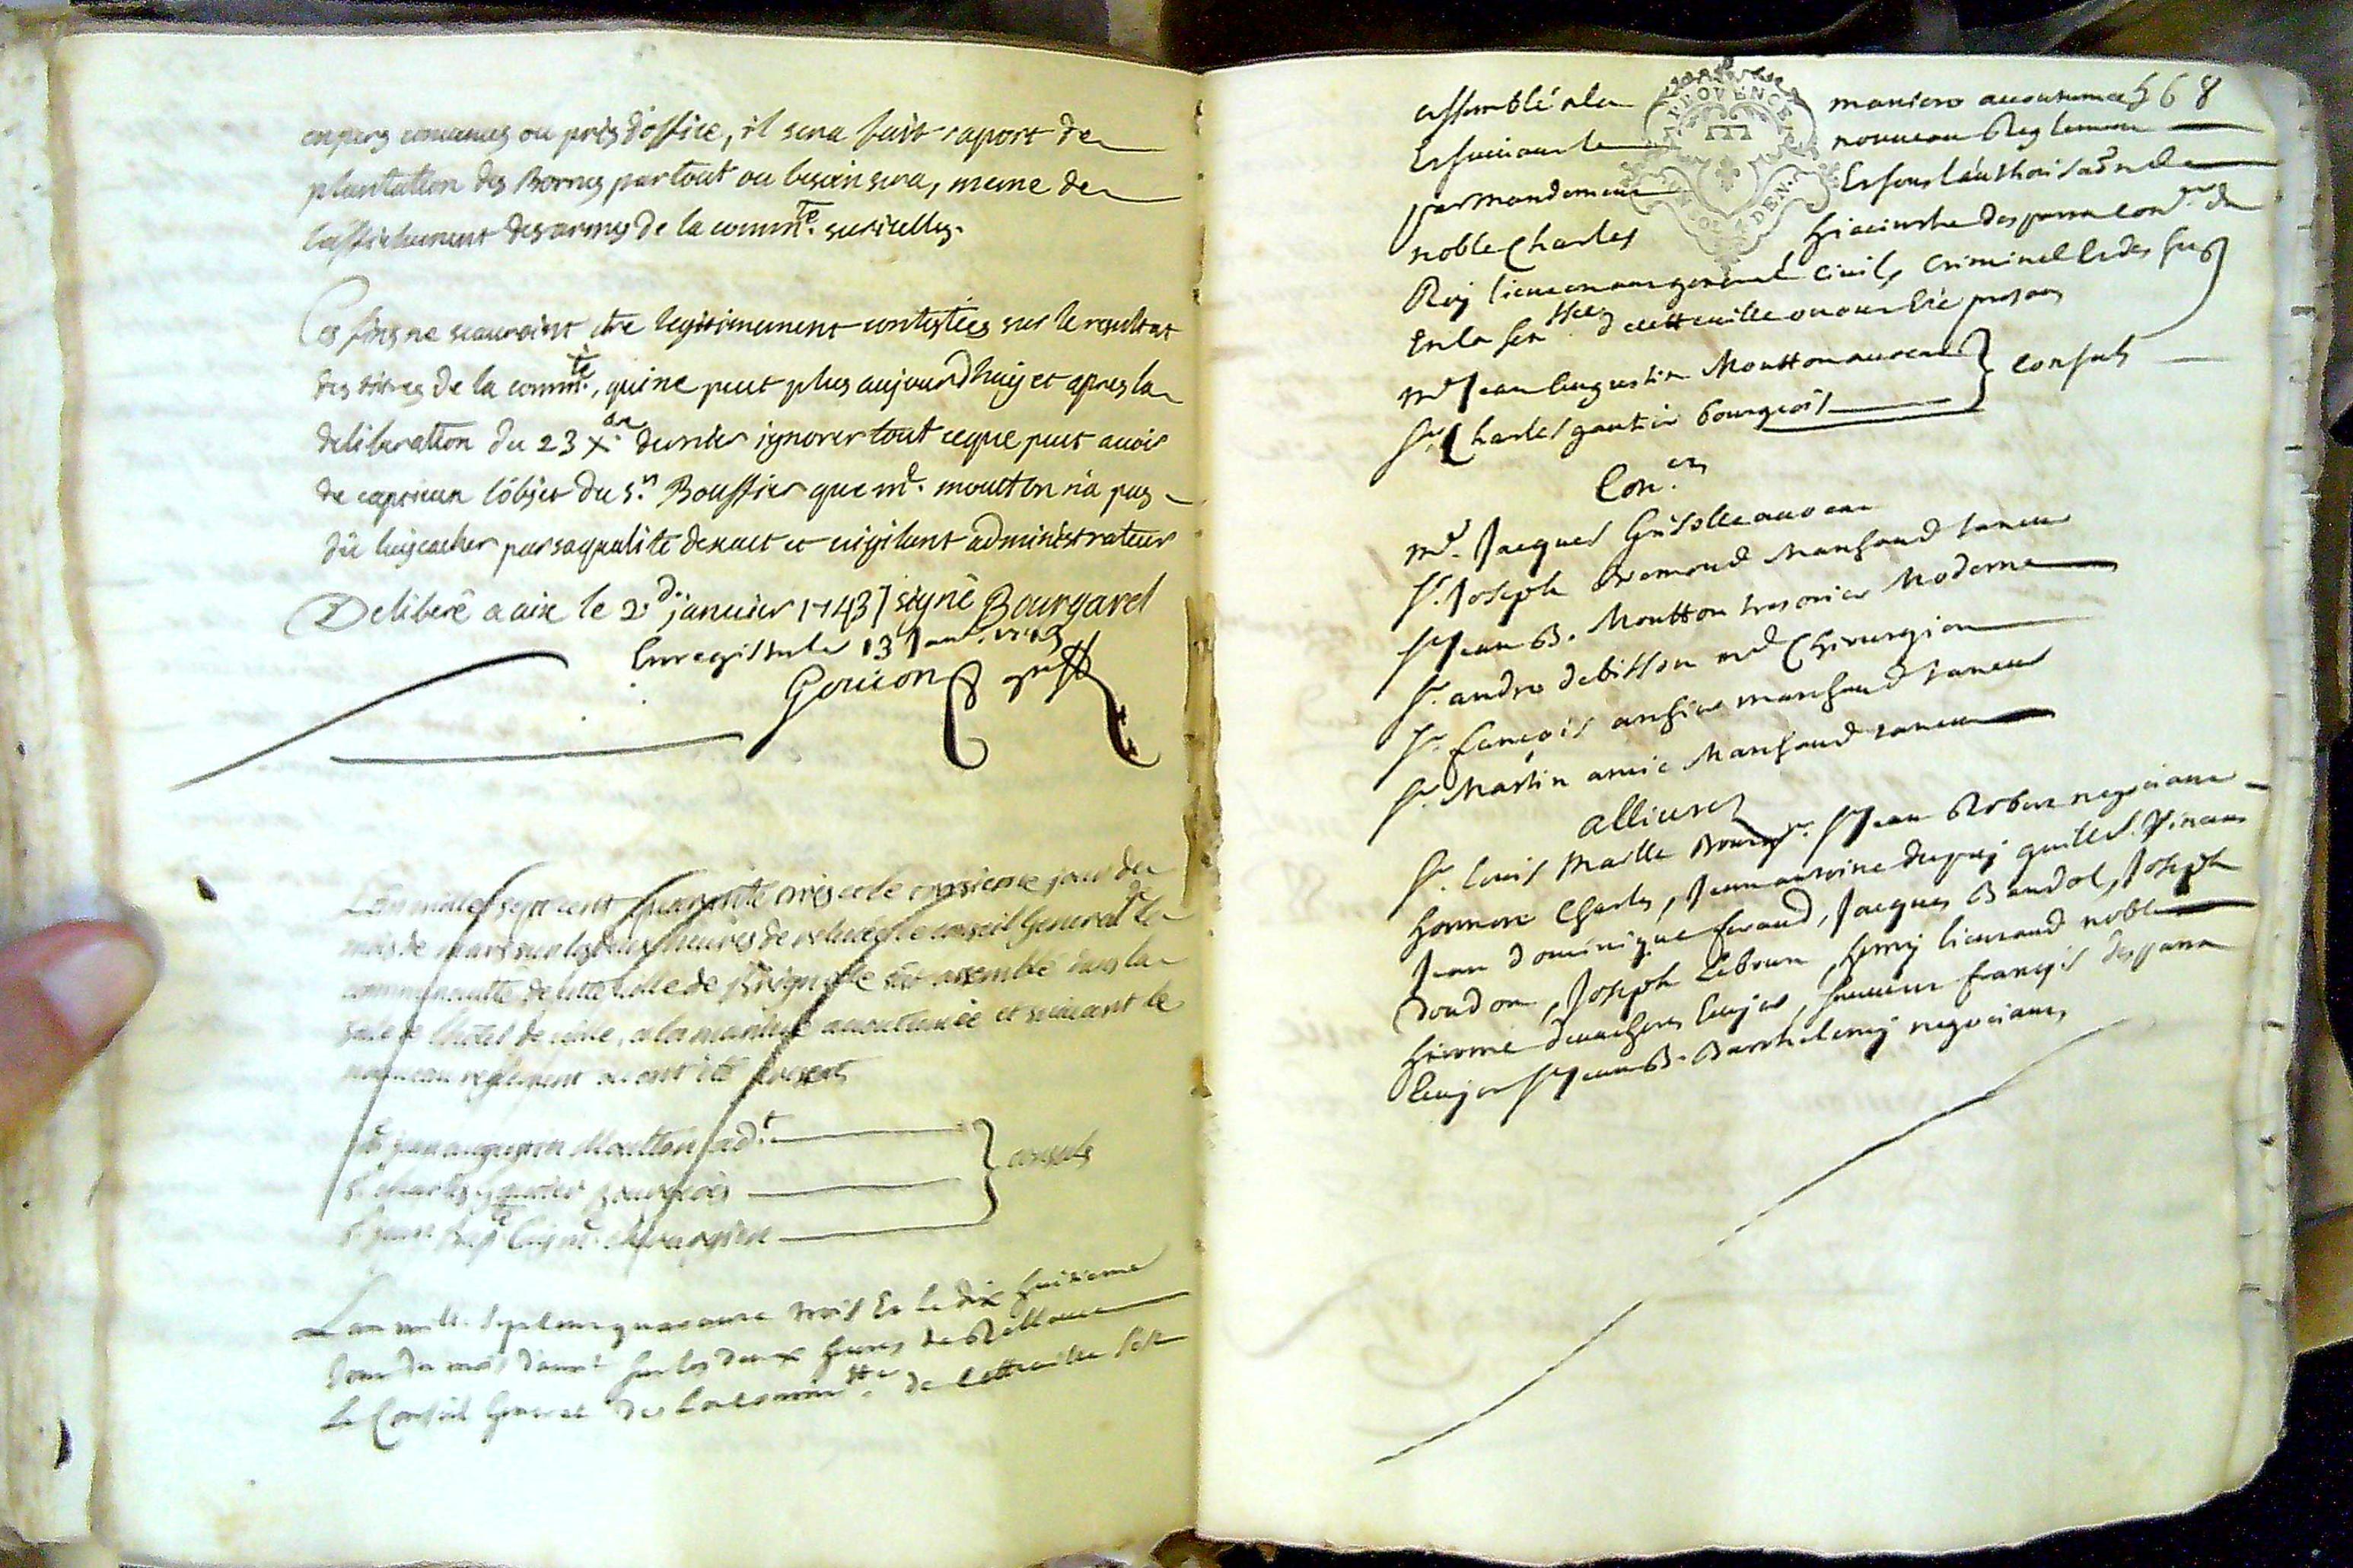 experts convenus ou pris d'office, il sera fait raport de
plantation des Bornes partout ou besoin sera, meme de
l'affichement des armes de la comm.te sur icelles.
Ces fins ne scauroint etre legitimement contestées sur le resultat
des titres de la comm.té, qui ne peut plus aujourdhuy et apres la
deliberation du 23 x.bre dernier ignorer tout ceque peut avoir
de l'objet du s.r Bouffier que m.e mouton n'a pas
dû luy cacher par sa qualité dexact et vigilant administrateur
Deliberé a aix le 2.d janvier 1743 signé Bourgarel
Enregistré le 13 Janv. 1743
Goujon greff
L'an mille sept cent quarante trois et le onsieme jour du
mois de mars sur les deux heures de relevée le conseil General de la
communauté de cette ville de Brignolle est assemblé dans la
sale de l'hotel de ville, a la maniere accoutumée et suivant le
nouveau reglement ou ont été presents
M.e jean augustin Moutton ad.t
s. charles gautier bourgeois
consuls
s. jean bap.te m.e chirurgien
Lan mille sept cens quarante trois Et le dix huitieme
Jour du mois d'avril sur les deux heures de Relleuee
Le Conseil General de la comm.tte de cette ville s'est
assemblé a la maniere accoutumée 568
Et suivant le nouveau Reglement
par mandement Et sous l'authorisaon de
noble Charles hiacinthe desparra con.er du
Roy lieutenant general civil, criminel des
En la sen.ssee de cette ville ou ont été presans
m.e Jean Augustin Moutton avocat
consuls
s.r Charles gautier bourgeois
Con.ers
m.e Jacques Grisolle avocat
s.r Joseph Bremond Marchand taneur
s.r Jean B. Moutton tresorier Moderne
s.r andre debisson m.e Chirurgien
s.r francois anfrier marchand taneur
s.r Martin amic Marchand taneur
allivrez
s.r louis Maille Bourg.s s.r Jean Robert negociant
honnore Charles, Jean antoine dupuy guilles. pinaus
Jean dominique feraud, Jacques Bandol, Joseph
doudon, Joseph Lebrun, lieutaud noble
hierome s.r francois desparra
s.r Jean B. Barthelemy negociant